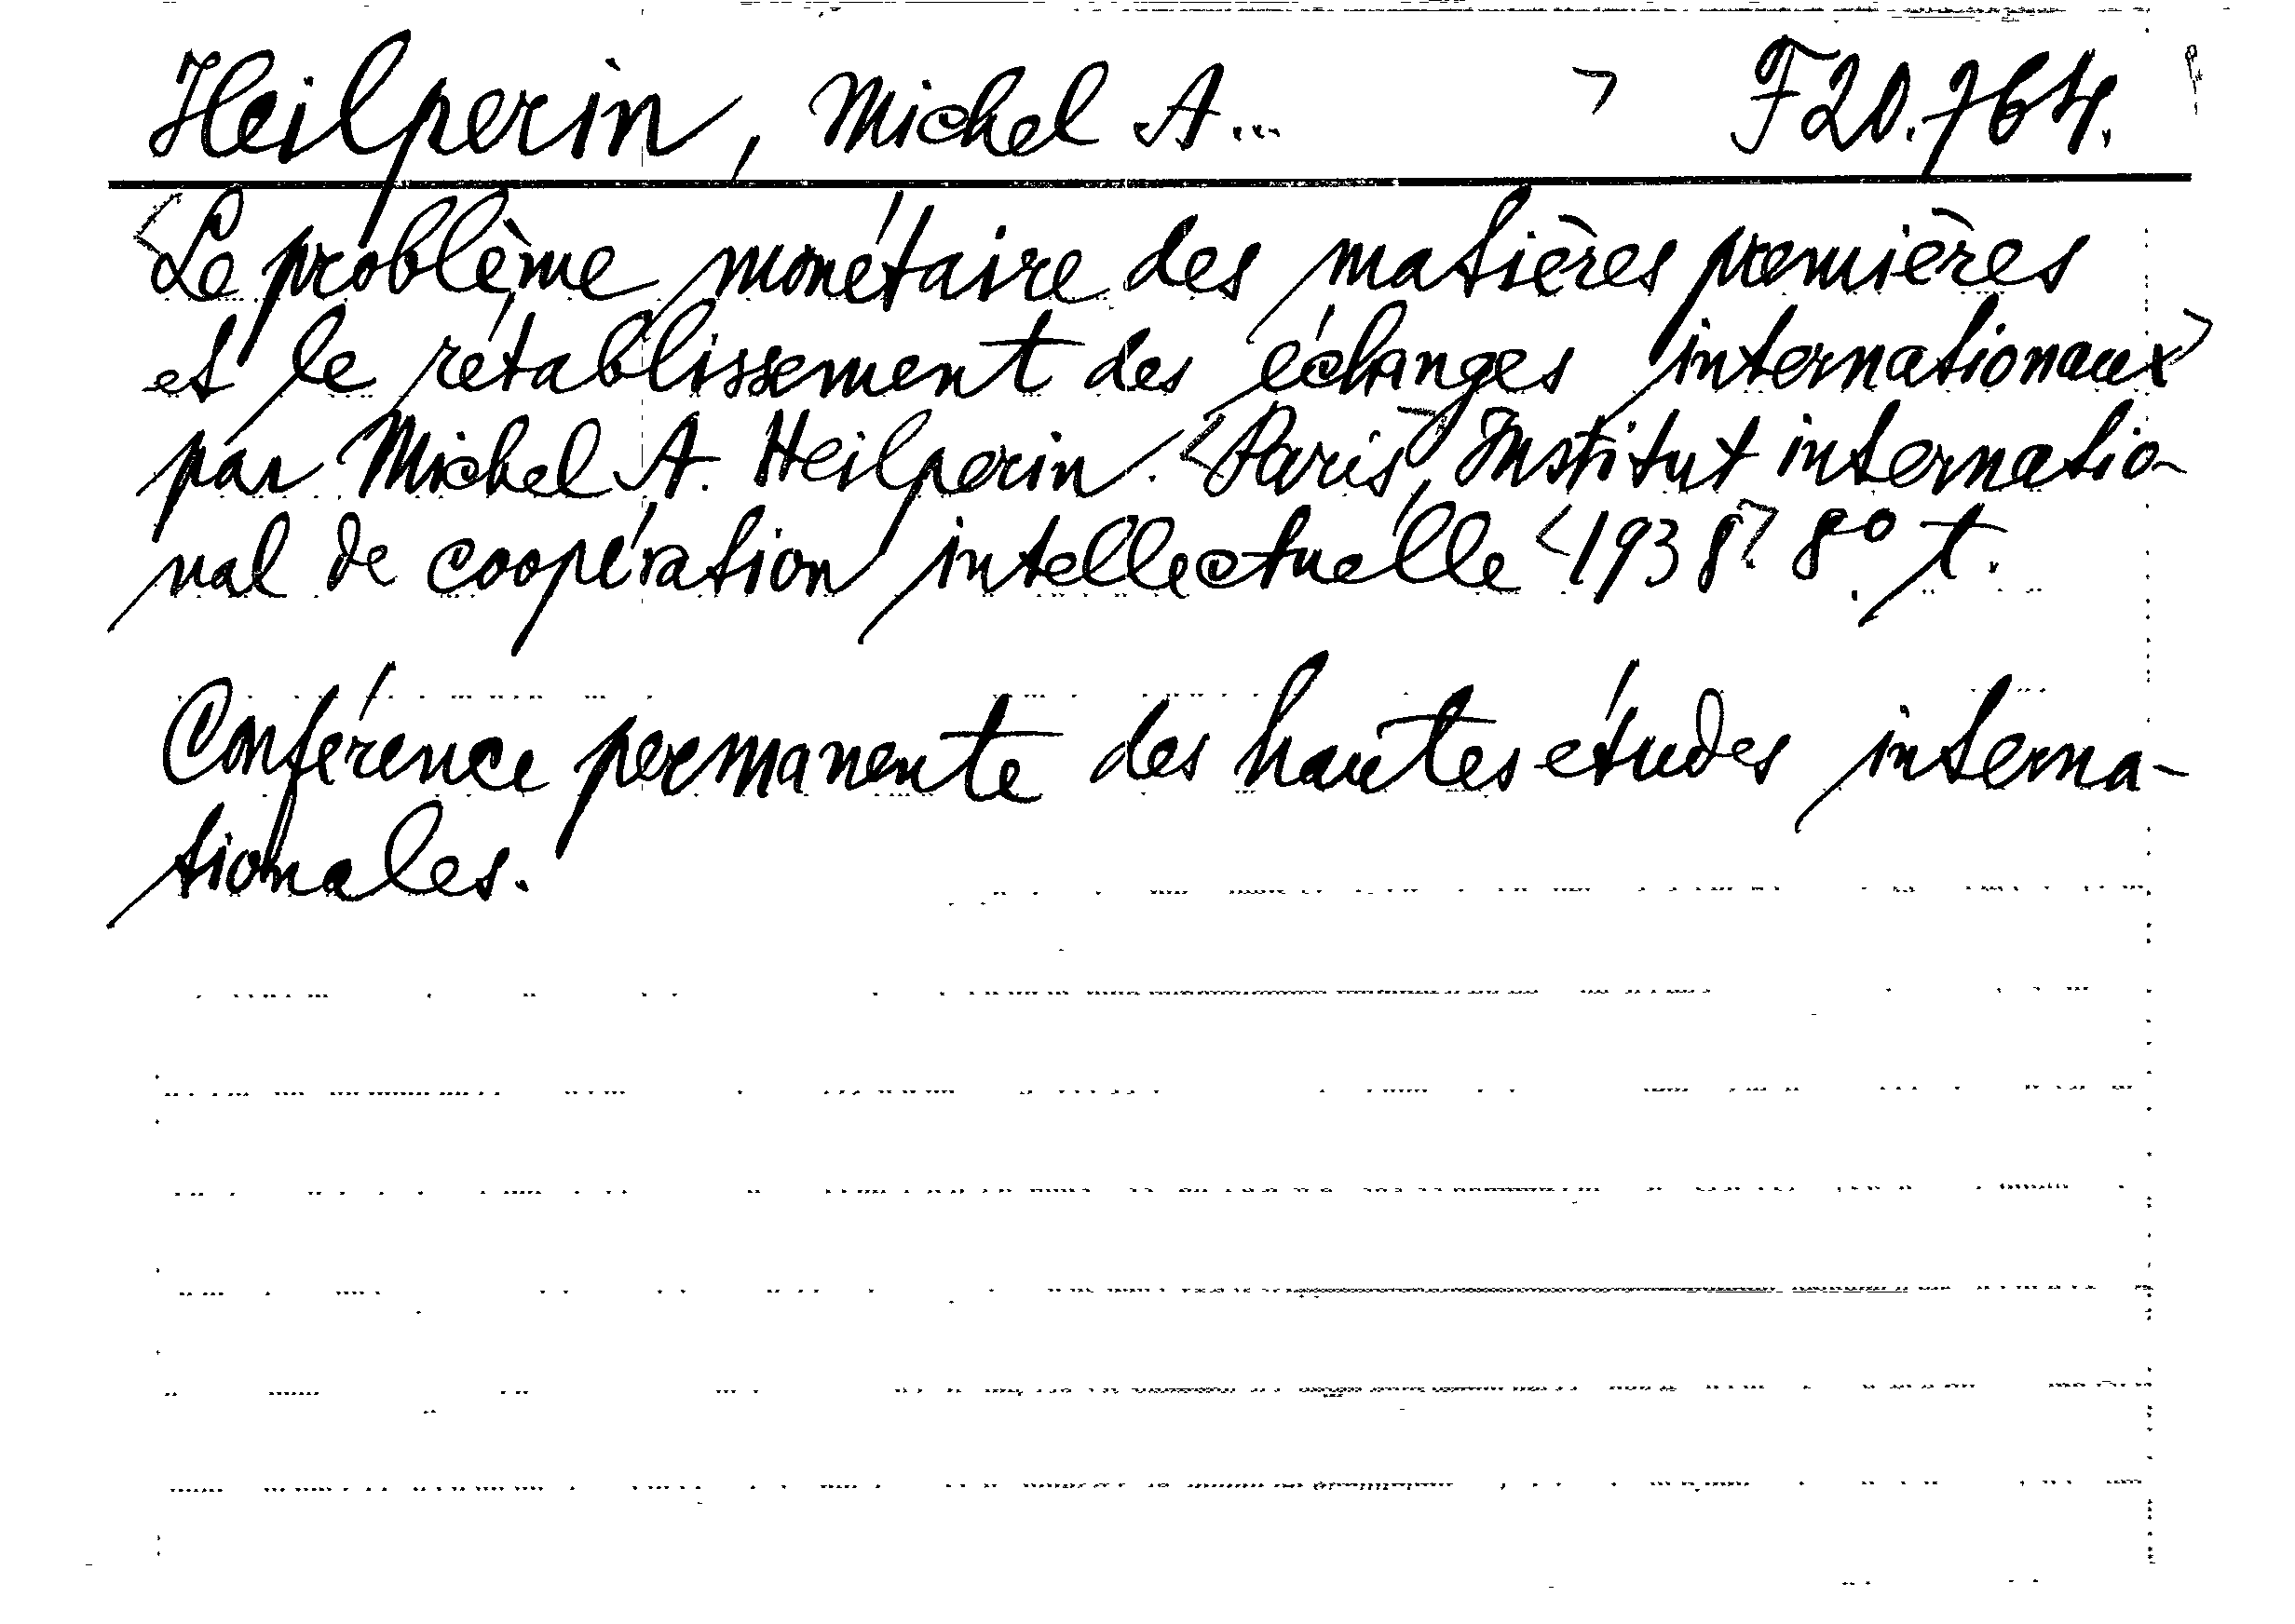 Heilperin, Michel A... > F 20.764.
<Le problème monétaire des matières premières
et le rétablissement des échanges internationaux>
par Michel A. Heilperin. <Paris>, Institut internatio-
nal de coopération intellectuelle <1938>. 8º. t.
Conférence permanente des hautes études interna-
tionales.